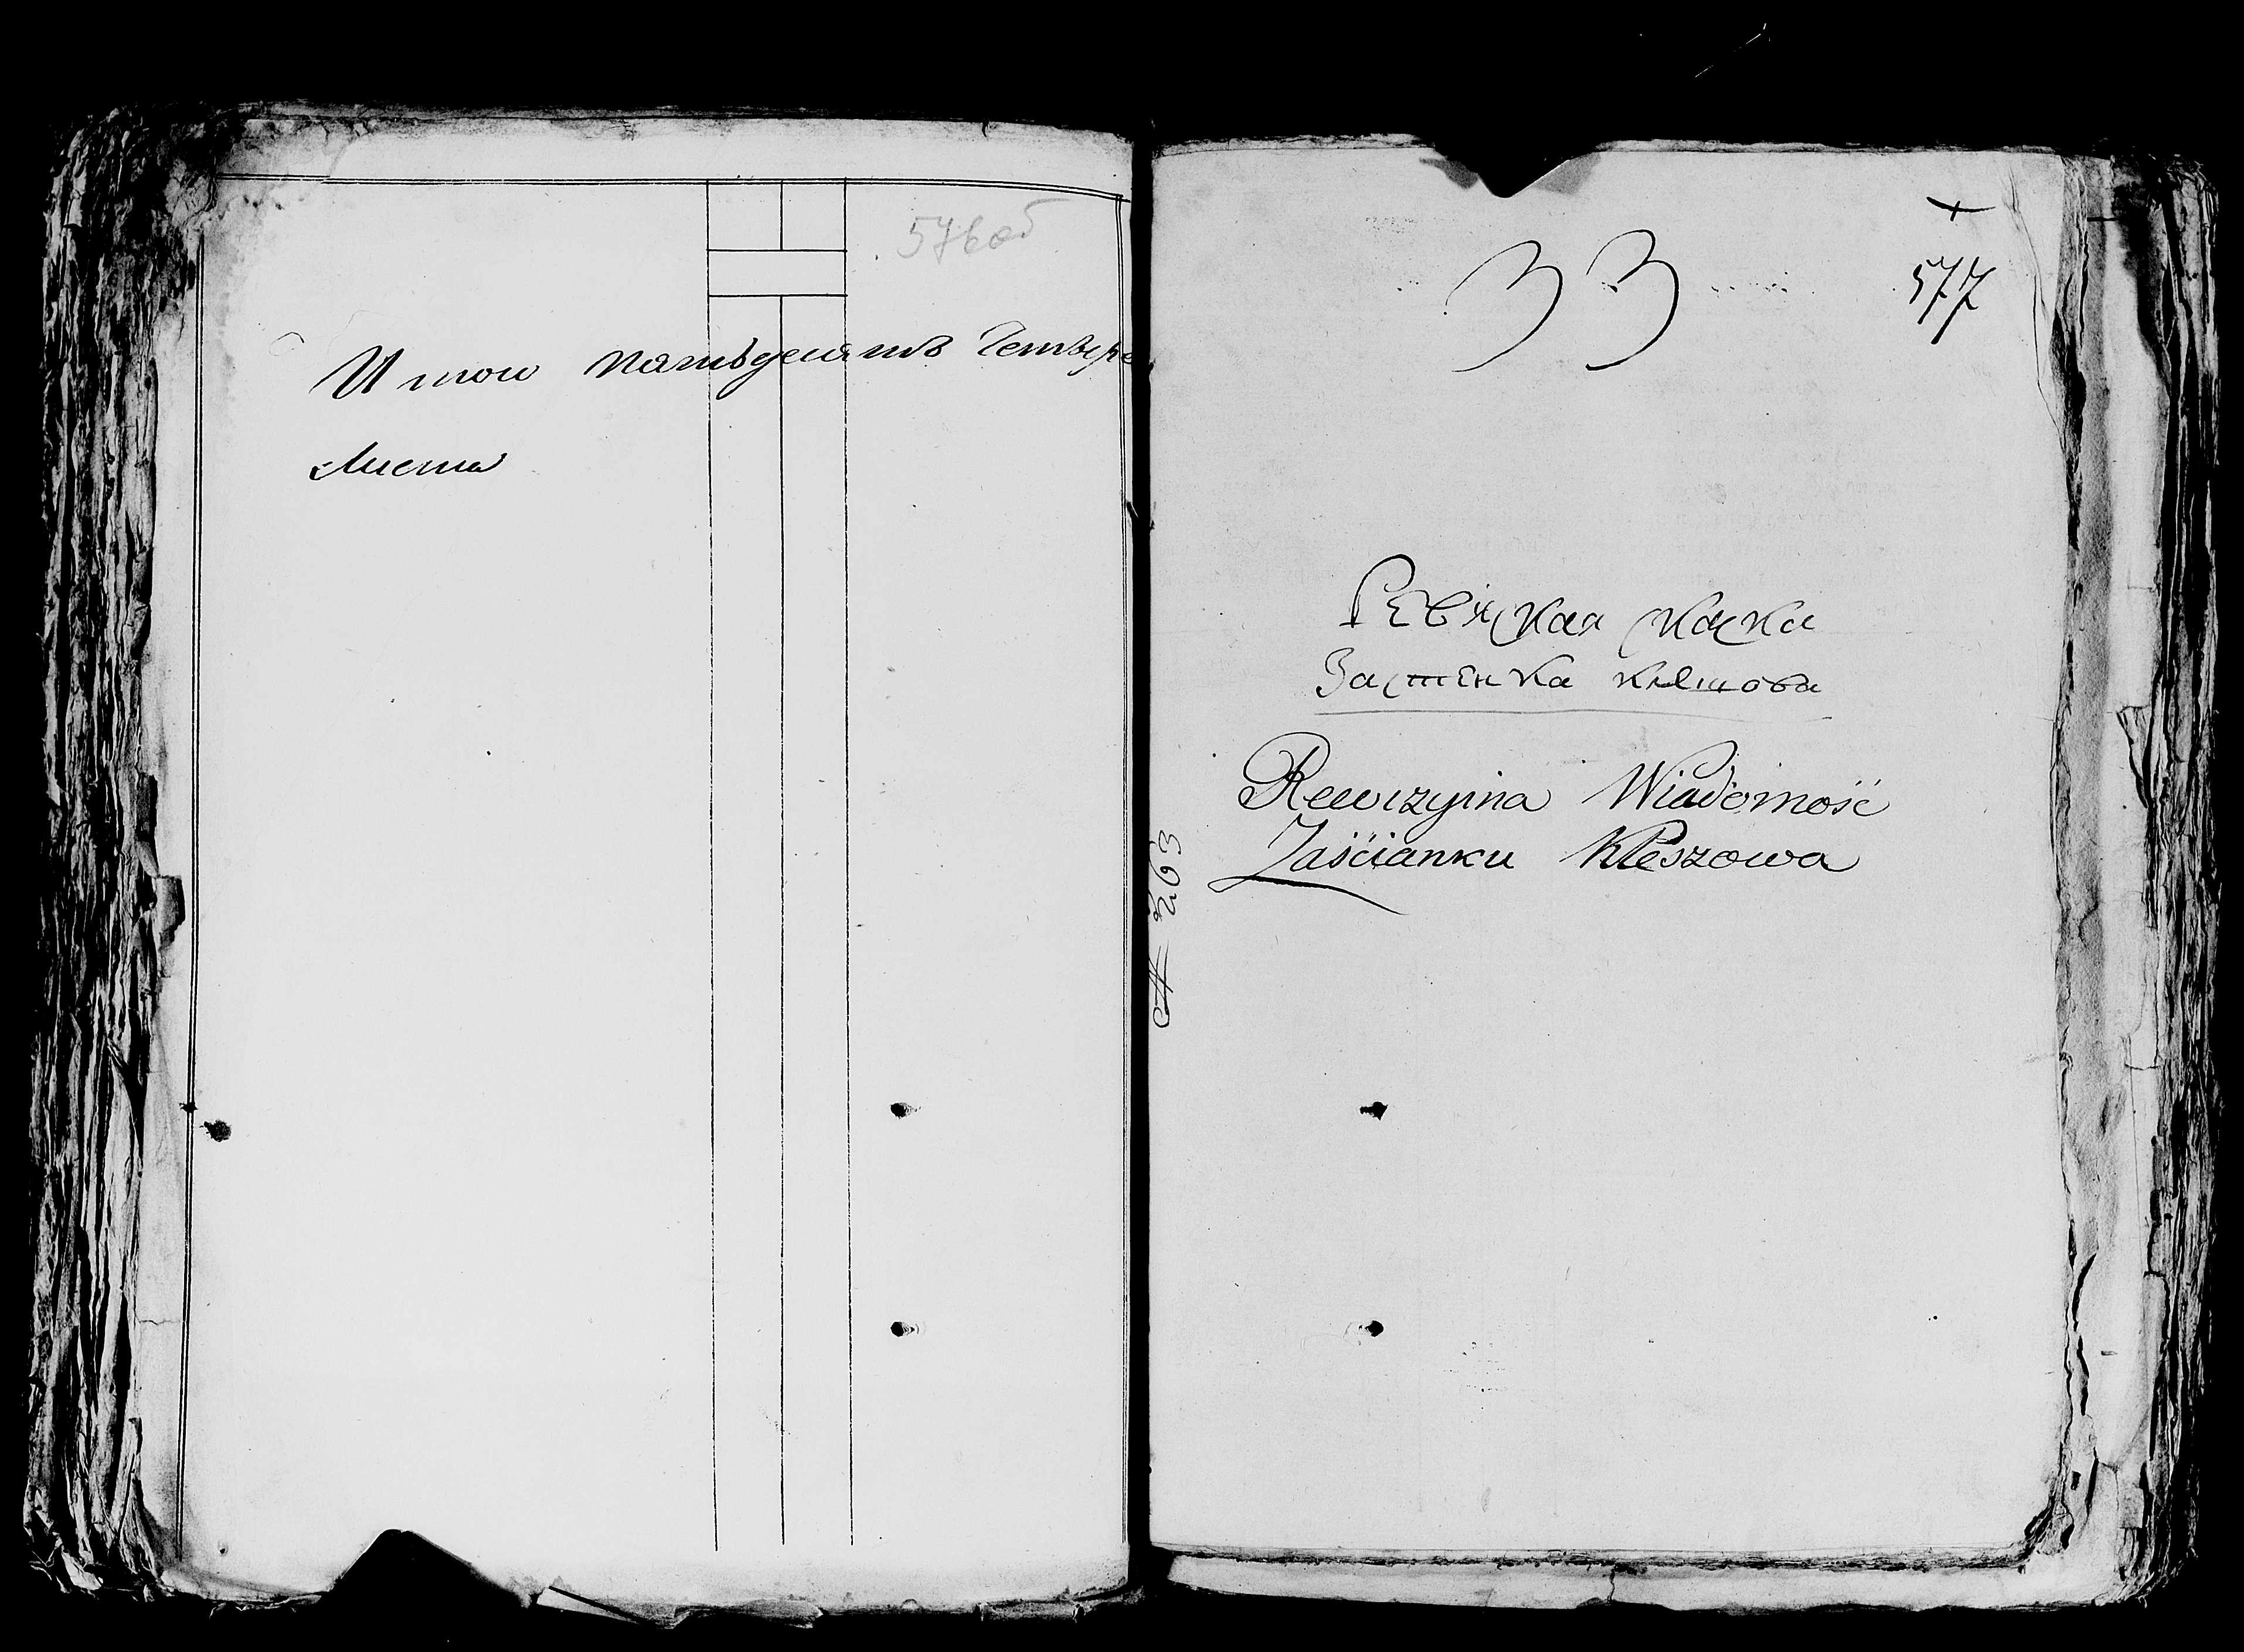 576об
Итого пятьдесятъ Четыре
Листа
33
577
Ревиская скаска
Застенка клешова
Rewizyina Wiadomość
Zaścianku Kleszowa
№ 263